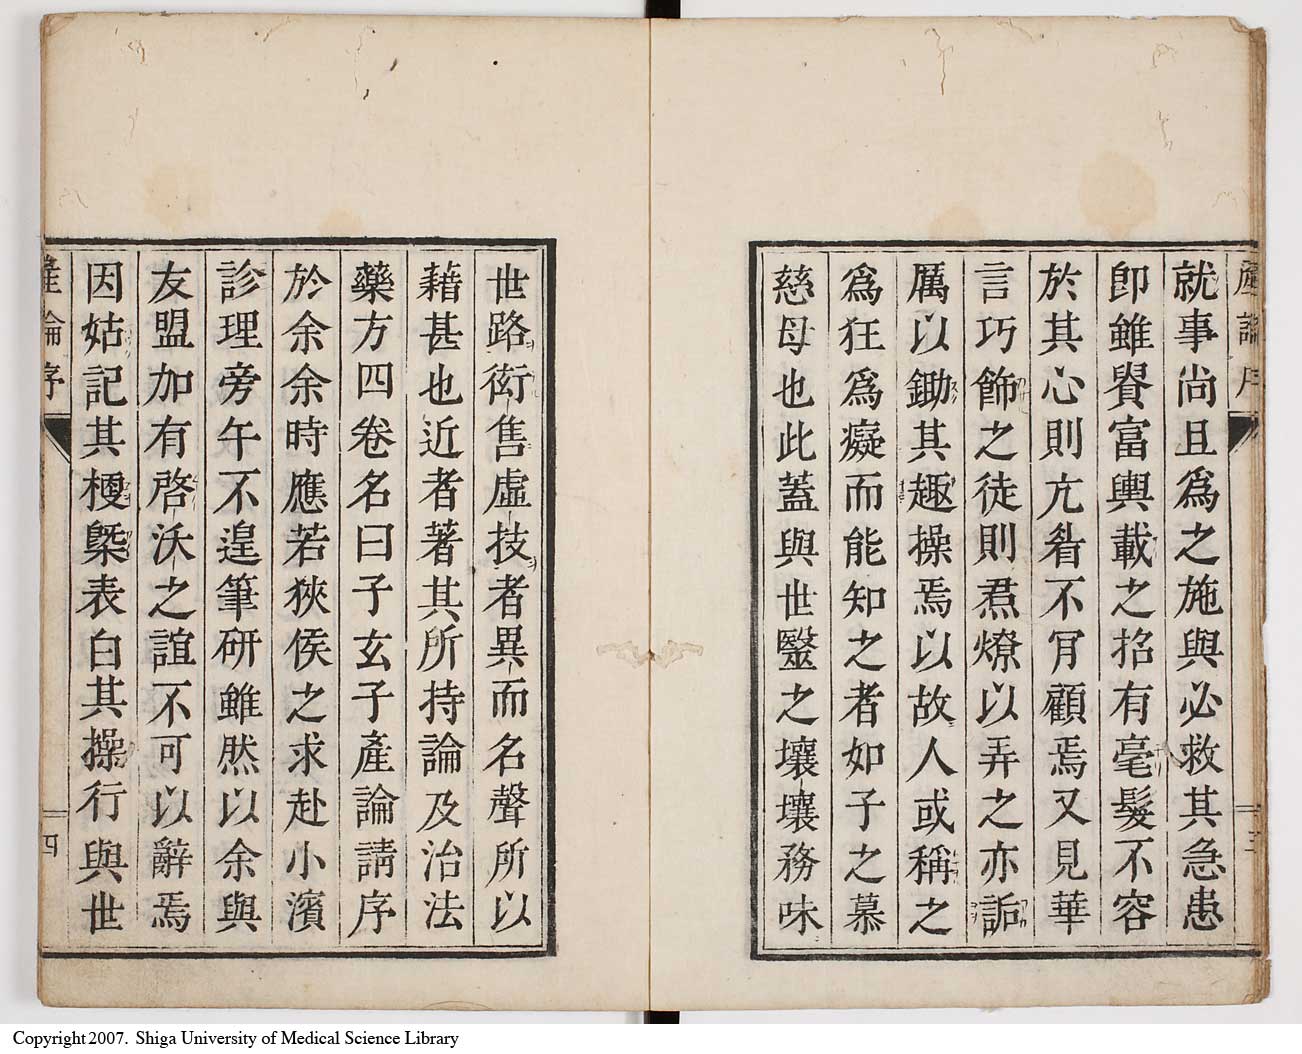 就事尚且爲之施與必救其急患
卽雖貴富輿載之招有毫髮不容
於其心則亢眥不肎顧焉又見華
言巧飾之徒則焄燎以弄之亦詬
厲以鋤其趣操焉以故人或稱之
爲狂爲癡而能知之者如子之慕
慈母也此蓋與世毉之壤壤務味
世路衒售虛技者異而名聲所以
藉甚也近者著其所持論及治法
藥方四卷名曰子玄子產論請序
於余余時應若狹侯之求赴小濱
診理旁午不遑筆硏雖然以余與
友盟加有啓沃之誼不可以辭焉
因姑記其梗槩表白其操行與世
產論序
四
Copyright 2007. Shiga University of Medical Science Library